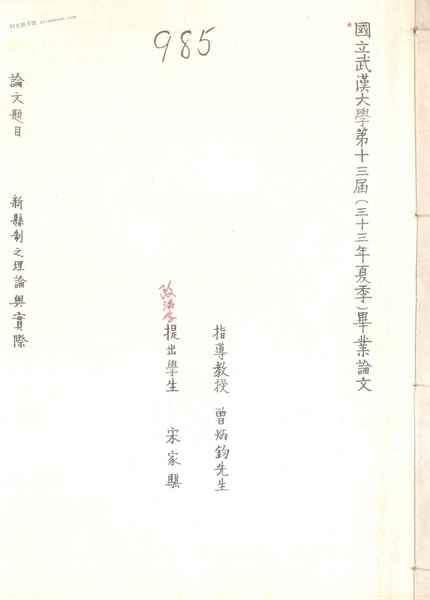 985
國立武漢大學第十三屆(三十三年夏季)畢業論文
指導教授 曾炳鈞先生
政治系
提出學生 宋家驥
論文題目 新縣制之理論與實際